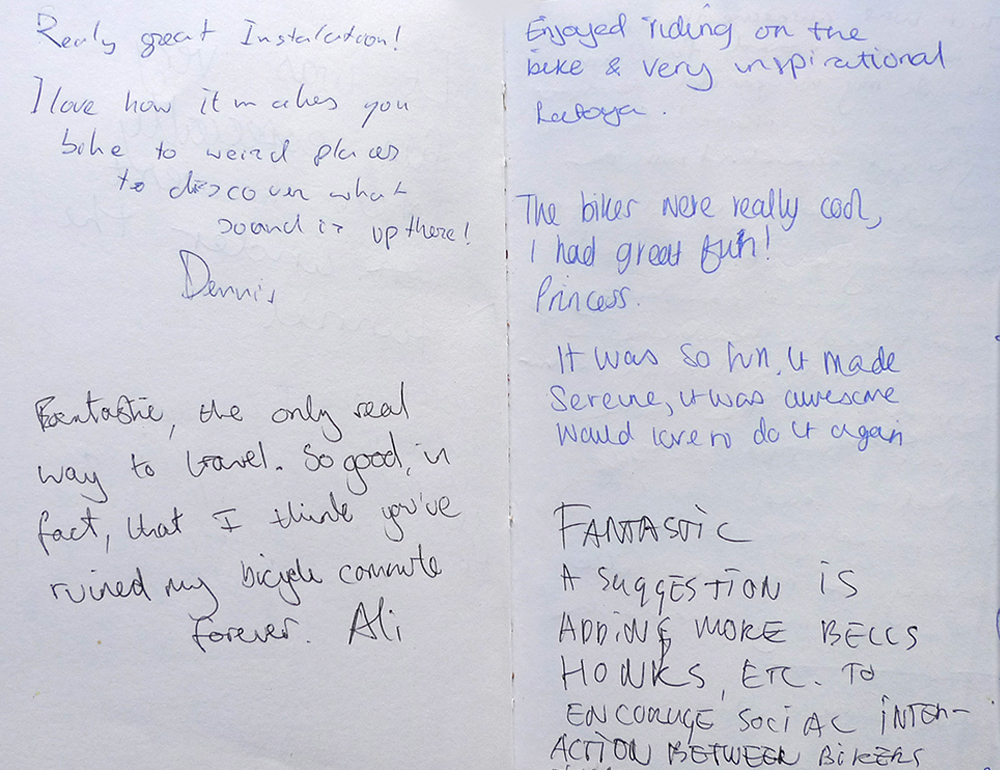 Realy great Instalation!
I love how it makes you
bike to weird places
to discover what
sound is up there!
Dennis
Fantastic, the only real
way to travel. So good, in
fact, that I think you've
ruined my bicycle commute
forever. Ali
Enjoyed riding on the
bike & very inspirational
Latoya.
The bikes were really cool,
I had great fun!
Princess.
It was so fun, it made
Serene, it was awesome
Would love to do it again
FANTASTIC
A SUGGESTION IS
ADDING MORE BELLS
HONKS, ETC. TO
ENCORUGE SOCIAL INTER-
ACTION BETWEEN BIKERS